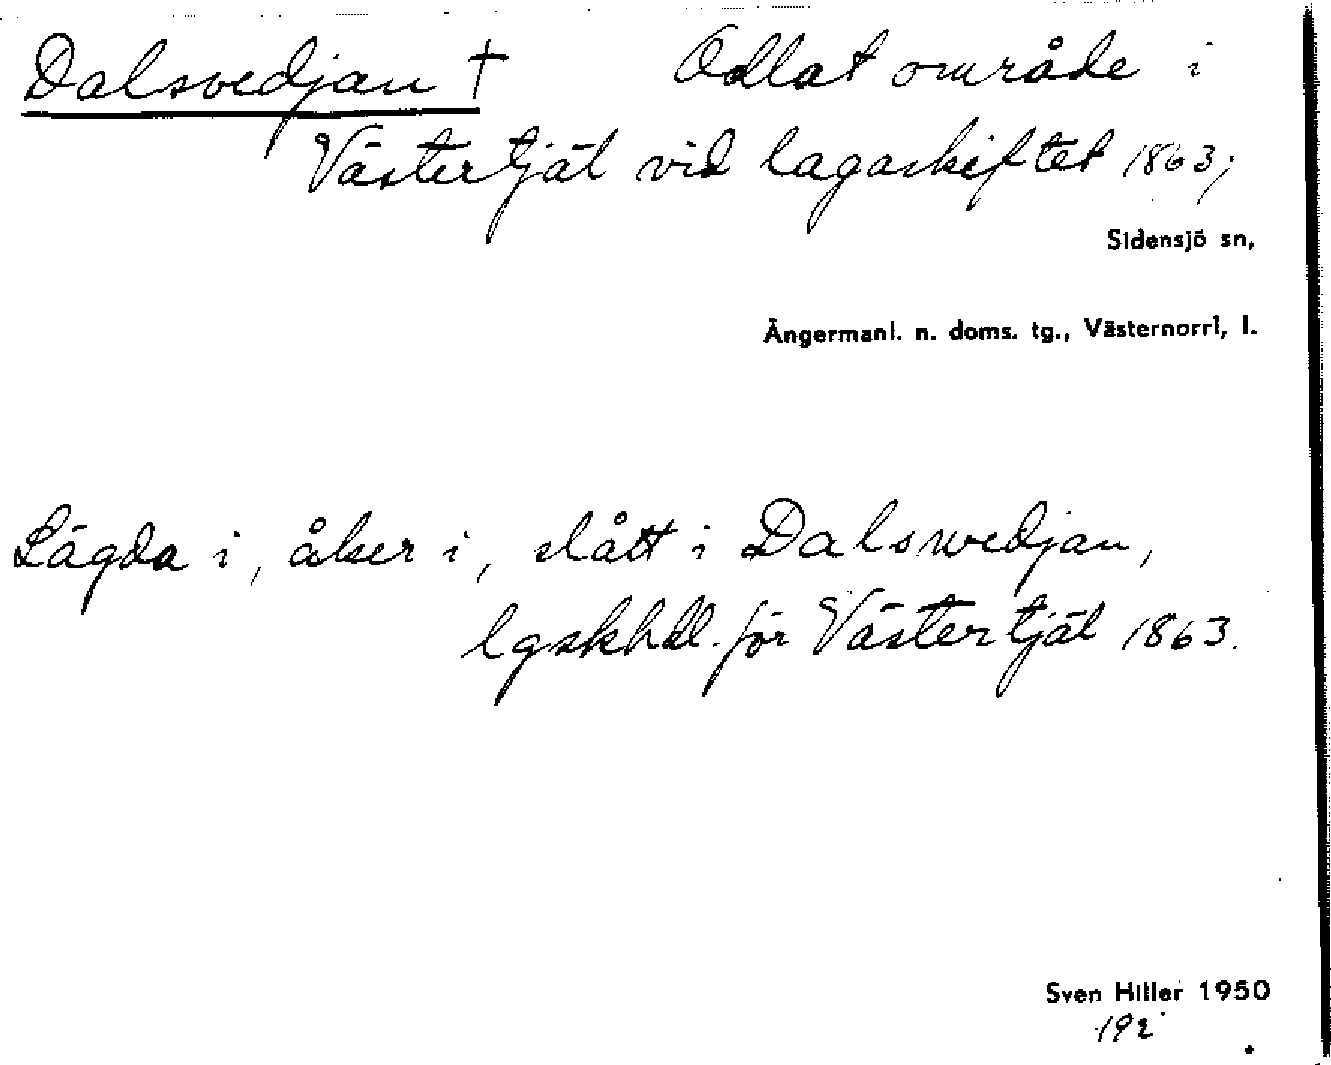 Dalsvedjan † Odlat område i
Västertjäl vid lagaskiftet 1863;
Sidensjö sn,
Ångermanl. n. doms. tg., Västernorrl, l.
Lägda i, åker i, slått i Dalswedjan,
lgskhdl. för Västertjäl 1863.
Sven Hiller 1950
192